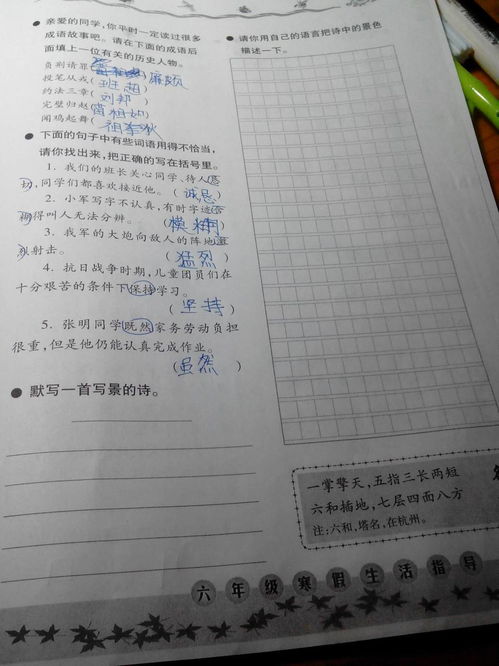 亲爱的同学,你平时一定读过很多
成语故事吧。请在下面的成语后
面填上一位有关的历史人物。
负荆请罪( ) 廉颇
投笔从戎(班超)
约法三章(刘邦)
完璧归赵(蔺相如)
闻鸡起舞(祖李狄)
● 下面的句子中有些词语用得不恰当,
请你找出来,把正确的写在括号里。
1. 我们的班长关心同学、待人
切,同学们都喜欢接近他。(诚恳)
2. 小军写字不认真,有时字迹
得叫人无法分辨。(模糊)
3. 我军的大炮向敌人的阵地
射击。(猛烈)
4. 抗日战争时期,儿童团员们在
十分艰苦的条件下保持学习。
(坚持)
5. 张明同学既然家务劳动负担
很重,但是他仍能认真完成作业。
(虽然)
● 默写一首写景的诗。
● 请你用自己的语言把诗中的景色
描述一下。
一掌擎天,五指三长两短
六和插地,七层四面八方
注:六和,塔名,在杭州。
六年级寒假生活指导